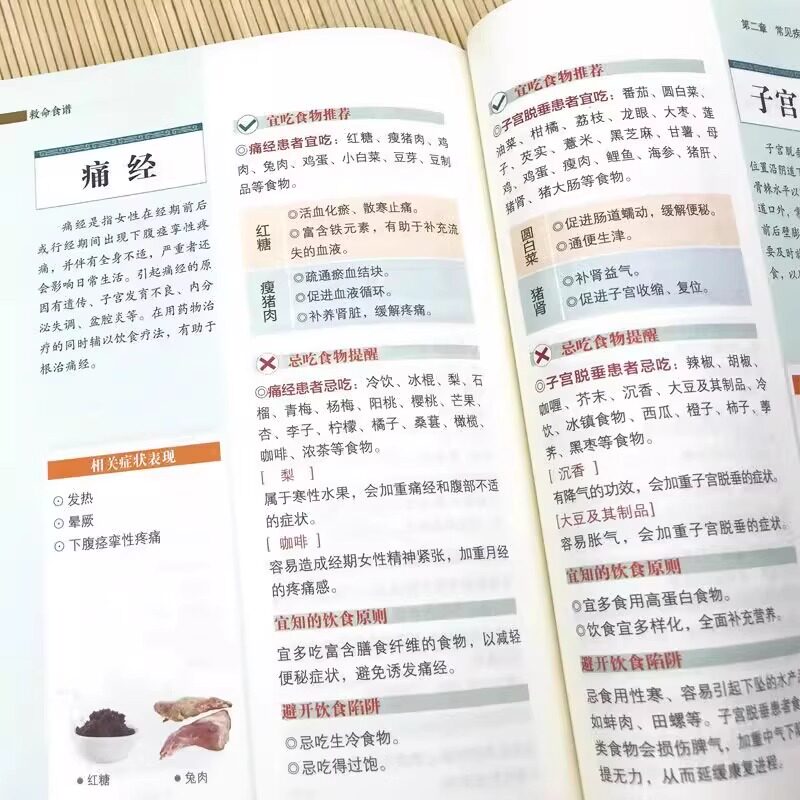 救命食谱
痛经
痛经是指女性在经期前后
或行经期间出现下腹痉挛性疼
痛，并伴有全身不适，严重者还
会影响日常生活。引起痛经的原
因有遗传、子宫发育不良、内分
泌失调、盆腔炎等。在用药物治
疗的同时辅以饮食疗法，有助于
根治痛经。
相关症状表现
⊙发热
⊙晕厥
⊙下腹痉挛性疼痛
●红糖
●兔肉
宜吃食物推荐
◎痛经患者宜吃：红糖、瘦猪肉、鸡
肉、兔肉、鸡蛋、小白菜、豆芽、豆制
品等食物。
红糖
◎活血化瘀、散寒止痛。
◎富含铁元素，有助于补充流
失的血液。
瘦猪肉
◎疏通瘀血结块。
◎促进血液循环。
◎补养肾脏，缓解疼痛。
忌吃食物提醒
◎痛经患者忌吃：冷饮、冰棍、梨、石
榴、青梅、杨梅、阳桃、樱桃、芒果、
杏、李子、柠檬、橘子、桑葚、橄榄、
咖啡、浓茶等食物。
[ 梨 ]
属于寒性水果，会加重痛经和腹部不适
的症状。
[ 咖啡 ]
容易造成经期女性精神紧张，加重月经
的疼痛感。
宜知的饮食原则
宜多吃富含膳食纤维的食物，以减轻
便秘症状，避免诱发痛经。
避开饮食陷阱
◎忌吃生冷食物。
◎忌吃得过饱。
宜吃食物推荐
◎子宫脱垂患者宜吃：番茄、圆白菜、
油菜、柑橘、荔枝、龙眼、大枣、莲
子、芡实、薏米、黑芝麻、甘薯、母
鸡、鸡蛋、瘦肉、鲤鱼、海参、猪肝、
猪肾、猪大肠等食物。
圆白菜
◎促进肠道蠕动，缓解便秘。
◎通便生津。
猪肾
◎补肾益气。
◎促进子宫收缩、复位。
忌吃食物提醒
◎子宫脱垂患者忌吃：辣椒、胡椒、
咖喱、芥末、沉香、大豆及其制品、冷
饮、冰镇食物、西瓜、橙子、柿子、荸
荠、黑枣等食物。
[ 沉香 ]
有降气的功效，会加重子宫脱垂的症状。
[大豆及其制品]
容易胀气，会加重子宫脱垂的症状。
宜知的饮食原则
◎宜多食用高蛋白食物。
◎饮食宜多样化，全面补充营养。
避开饮食陷阱
忌食用性寒、容易引起下坠的水产品
如蚌肉、田螺等。子宫脱垂患者食
类食物会损伤脾气，加重中气下陷
提无力，从而延缓康复进程。
第二章 常见疾
子宫
子宫脱垂
位置沿阴道下
骨棘水平以
道口外，常
前后壁膨
要及时前
食，以